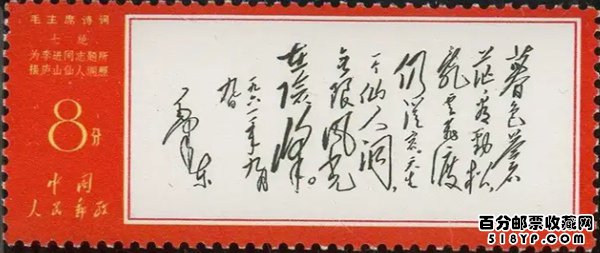 毛主席诗词
七绝
为李进同志题所
摄庐山仙人洞照
8分
中国
人民邮政
暮色蒼
茫看劲松,
乱云飞渡
仍從容。天生
一个仙人洞,
无限风光
在险峰。
一九六一年九月
九日
毛泽东
百分邮票收藏网
518YP.com